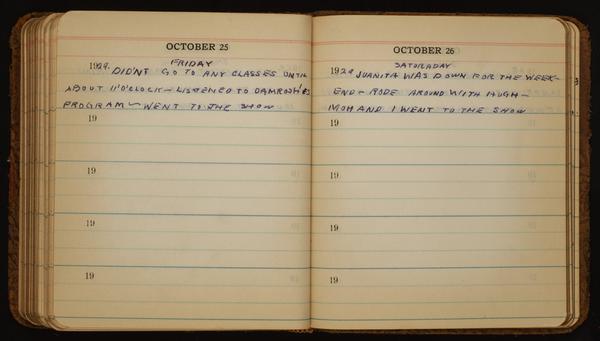 OCTOBER 25
FRIDAY
1929. DIDN'T GO TO ANY CLASSES UNTIL
ABOUT 11 O'CLOCK - LISTENED TO DAMROSH'S
PROGRAM - WENT TO THE SHOW
19
19
19
19
OCTOBER 26
SATURADAY
1929 JUANITA WAS DOWN FOR THE WEEK-
END - RODE AROUND WITH HUGH -
MOM AND I WENT TO THE SHOW
19
19
19
19